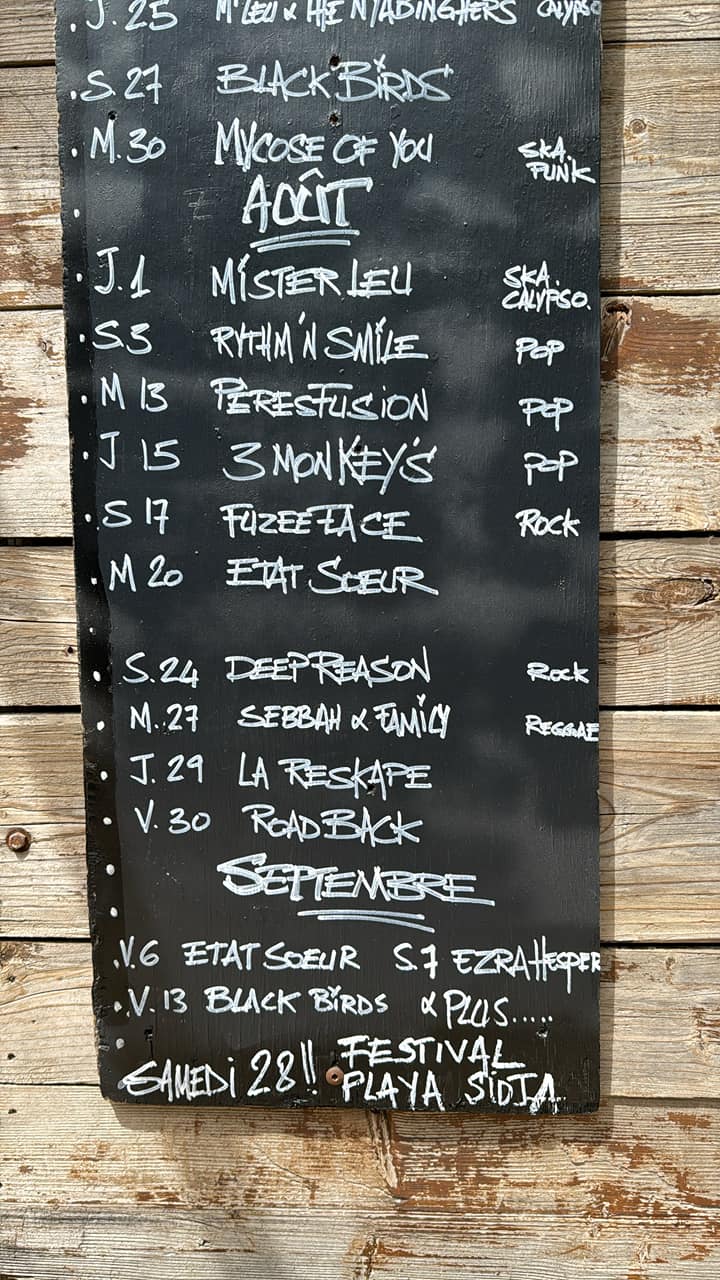 J. 25 M'LEU & THE NYABINGHERS CALYPSO
S. 27 BLACK BIRDS
M. 30 MYCOSE OF YOU SKA. PUNK
AOÛT
J. 1 MISTER LEU SKA. CALYPSO.
S. 3 RYTHM'N SMILE POP
M 13 PERESFUSION POP
J 15 3 MONKEY'S POP
S 17 FUZEEFACE ROCK
M 20 ETAT SOEUR
S. 24 DEEP REASON ROCK
M. 27 SEBBAH & FAMILY REGGAE
J. 29 LA RESKAPE
V. 30 ROAD BACK
SEPTEMBRE
V. 6 ETAT SOEUR S. 7 EZRA HESPER
V. 13 BLACK BIRDS & PLUS.....
SAMEDI 28!! FESTIVAL
PLAYA